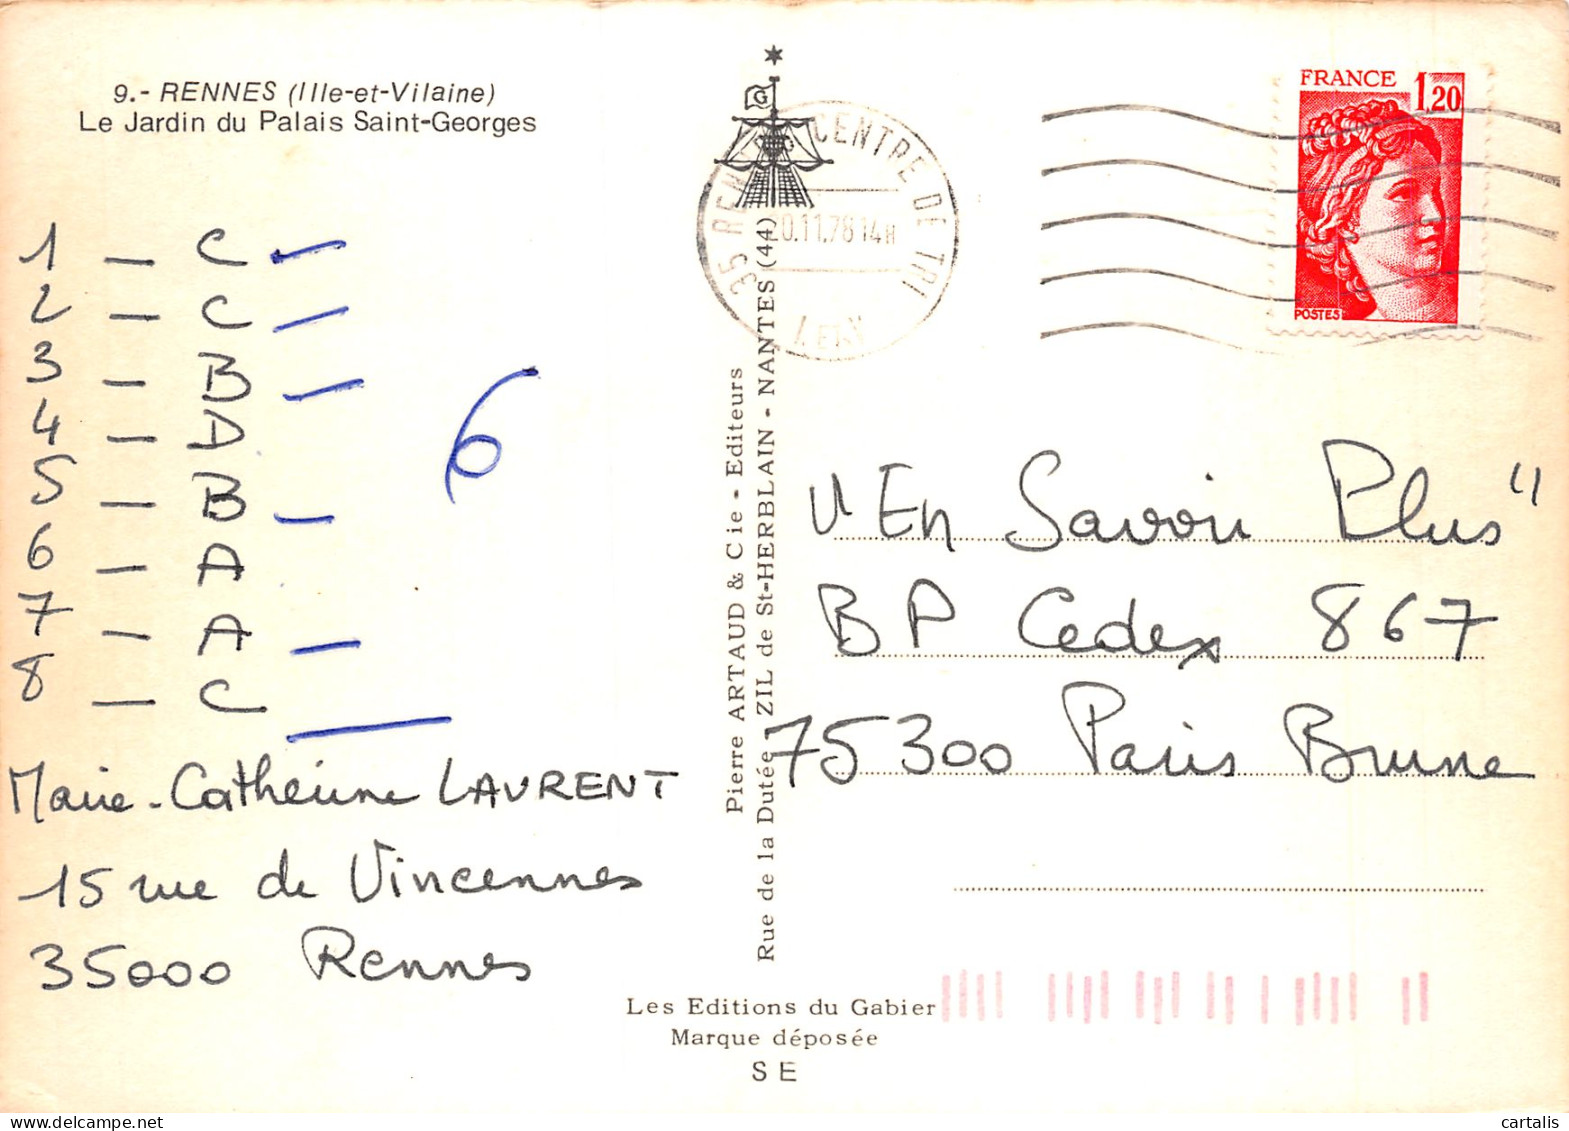 9.- RENNES (Ille-et-Vilaine)
Le Jardin du Palais Saint-Georges
1 – C
2 – C
3 – B
4 – D
5 – B
6 – A
7 – A
8 – C
6
Marie-Catherine LAURENT
15 rue de Vincennes
35000 Rennes
Pierre ARTAUD & Cie - Editeurs
Rue de la Dutée - ZIL de St-HERBLAIN - NANTES (44)
Les Editions du Gabier
Marque déposée
SE
G
35 RENNES CENTRE DE TRI
20.11.78 14H
FRANCE 1,20
POSTES
"En Savoir Plus"
BP Cedex 867
75300 Paris Brune
cartalis